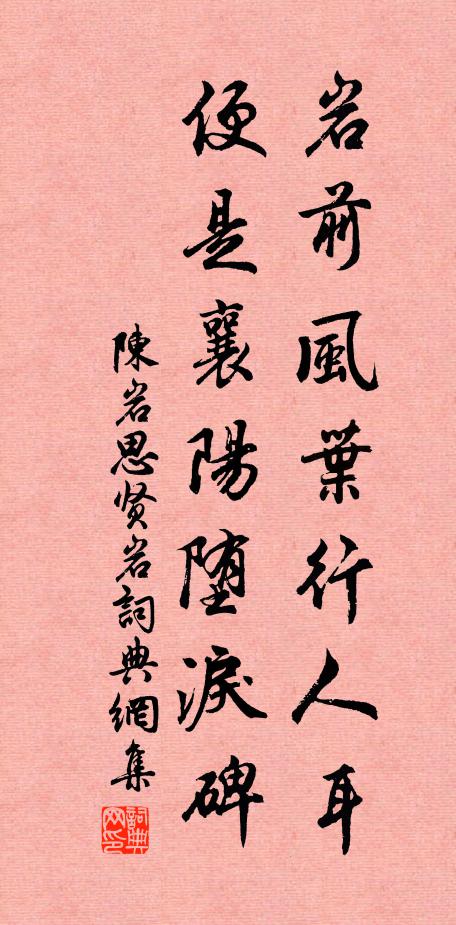 岩前風葉行人耳
便是襄陽堕淚碑
陳岩思贤岩詞典網集
詞典网印